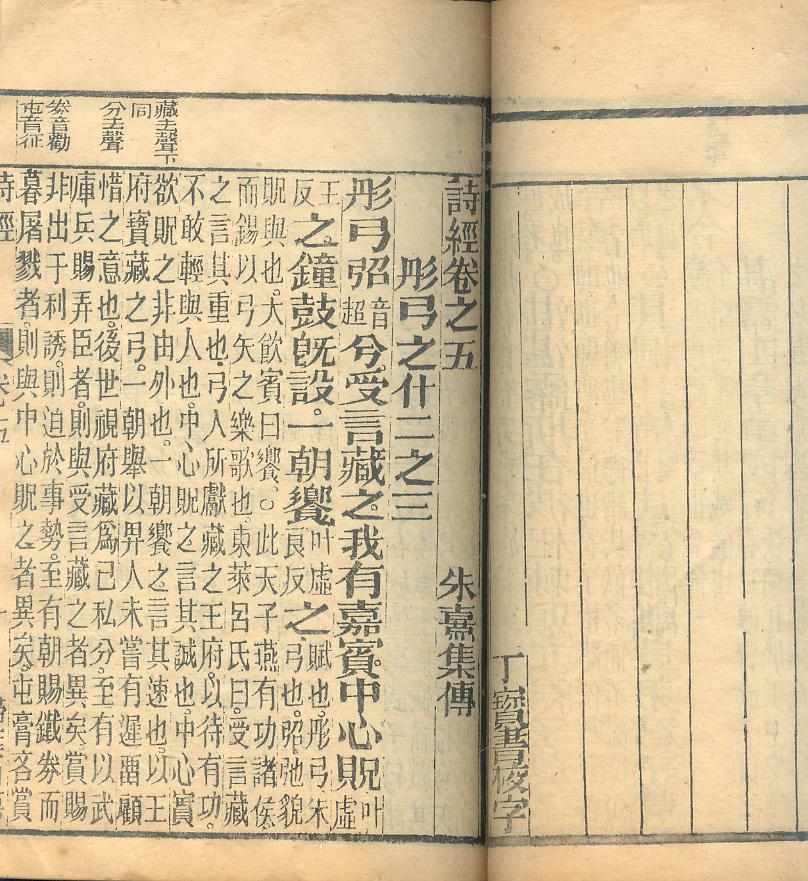 丁寶書校字
詩經卷之五　朱熹集傳
彤弓之什二之三
彤弓弨音超兮受言藏之。我有嘉賓。中心貺叶虛
王反之。鐘鼓旣設。一朝饗叶虛良反之賦也。彤弓。朱弓也。弨。弛貌
貺。與也。大飲賓曰饗。○此天子燕有功諸侯。
而錫以弓矢之樂歌也。東萊呂氏曰。受言藏
之。言其重也。弓人所獻。藏之王府。以待有功。
不敢輕與人也。中心貺之。言其誠也。中心實
欲貺之。非由外也。一朝饗之。言其速也。以王
府寶藏之弓。一朝舉以畀人。未嘗有遲畱顧
惜之意也。後世視府藏爲己私分。至有以武
庫兵賜弄臣者。則與受言藏之者異矣。賞賜
非出于利誘。則迫於事勢。至有朝賜鐵券而
暮屠戮者。則與中心貺之者異矣。屯膏吝賞
藏去聲下
同
分去聲
券音勸
屯音征
詩經